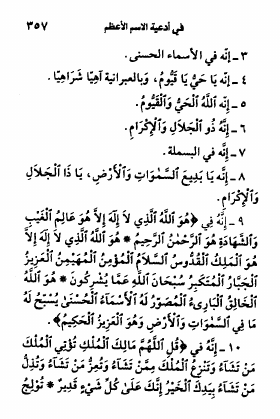 في أدعية الاسم الأعظم ٣٥٧
٣ ـ إنّه في الأسماء الحسنى.
٤ ـ إنّه يَا حَيُّ يَا قَيُّومُ، وَبالعبرانية آهِيّا شَرَاهِيّا.
٥ ـ إنّه اَللَّهُ الْحَيُّ وَالْقَيُّومُ.
٦ ـ إِنَّهُ ذُو الْجَلَالِ وَالْإِكْرَامِ.
٧ ـ إنّه في البسملة.
٨ ـ إِنَّهُ يَا بَدِيعَ السَّمَوَاتِ وَالْأَرْضِ، يَا ذَا الْجَلَالِ
وَالْإِكْرَامِ.
٩ ـ إِنَّهُ فِي ﴿هُوَ اللَّهُ الَّذِي لَا إِلَهَ إِلَّا هُوَ عَالِمُ الْغَيْبِ
وَالشَّهَادَةِ هُوَ الرَّحْمَنُ الرَّحِيمُ * هُوَ اللَّهُ الَّذِي لَا إِلَهَ إِلَّا
هُوَ الْمَلِكُ الْقُدُّوسُ السَّلَامُ الْمُؤْمِنُ الْمُهَيْمِنُ الْعَزِيزُ
الْجَبَّارُ الْمُتَكَبِّرُ سُبْحَانَ اللَّهِ عَمَّا يُشْرِكُونَ * هُوَ اللَّهُ
الْخَالِقُ الْبَارِىءُ الْمُصَوِّرُ لَهُ الْأَسْمَاءُ الْحُسْنَىٰ يُسَبِّحُ لَهُ
مَا فِي السَّمَوَاتِ وَالْأَرْضِ وَهُوَ الْعَزِيزُ الْحَكِيمُ﴾.
١٠ ـ إنَّه في ﴿قُلِ اللَّهُمَّ مَالِكَ الْمُلْكِ تُؤْتِي الْمُلْكَ
مَنْ تَشَاءُ وَتَنْزِعُ الْمُلْكَ مِمَّنْ تَشَاءُ وَتُعِزُّ مَنْ تَشَاءُ وَتُذِلُّ
مَنْ تَشَاءُ بِيَدِكَ الْخَيْرُ إِنَّكَ عَلَىٰ كُلِّ شَيْءٍ قَدِيرٌ * تُولِجُ